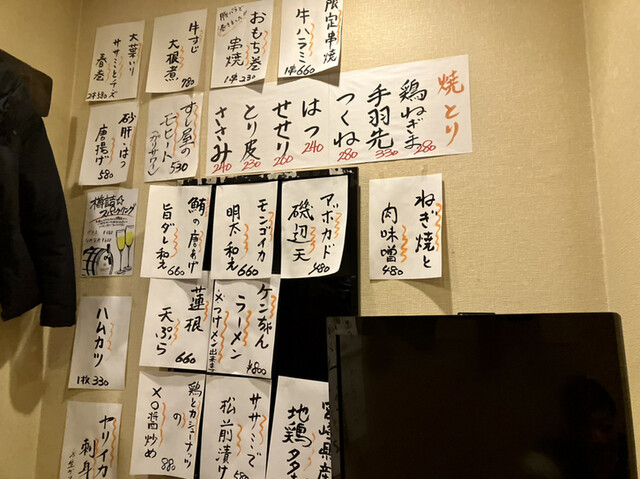 限定串焼
牛ハラミ
1本660
おもち巻
串焼
1本230
牛すじ
大根煮
780
大葉入り
ササミとチーズ
春巻
2本580
焼とり
鶏ねぎま
280
手羽先
330
つくね
280
はつ
240
せせり
260
とり皮
230
ささみ
240
すし屋の
モヒート
(ガリサワー)
530
砂肝・はつ
唐揚げ
580
樽詰め
スパークリング
ねぎ焼と
肉味噌
480
アボカド
磯辺天
480
モンゴイカ
明太和え
660
鮪の唐あげ
旨ダレ和え
660
ケンちゃん
ラーメン
※つけメン出来ます
¥800
蓮根
天ぷら
660
ハムカツ
1枚330
宮崎県産
地鶏タタ
ササミで
松前漬け
580
鶏とカシューナッツ
の
XO醤炒め
880
ヤリイカ
刺身